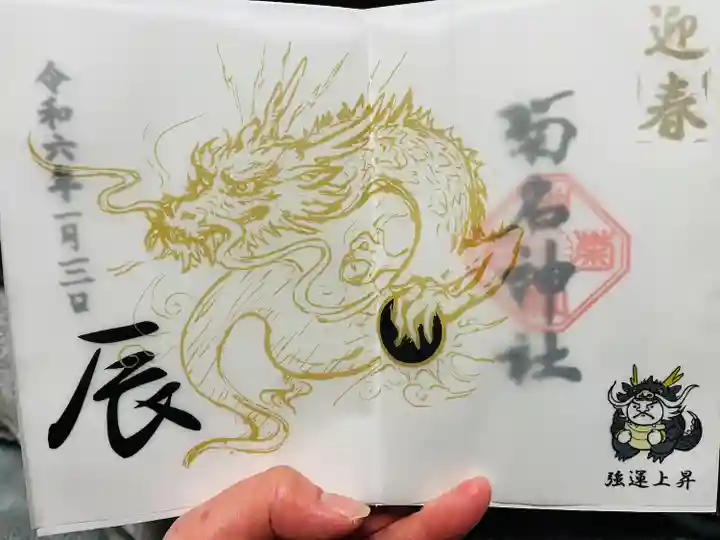 迎春
菊名神社
令和六年一月三日
辰
強運上昇